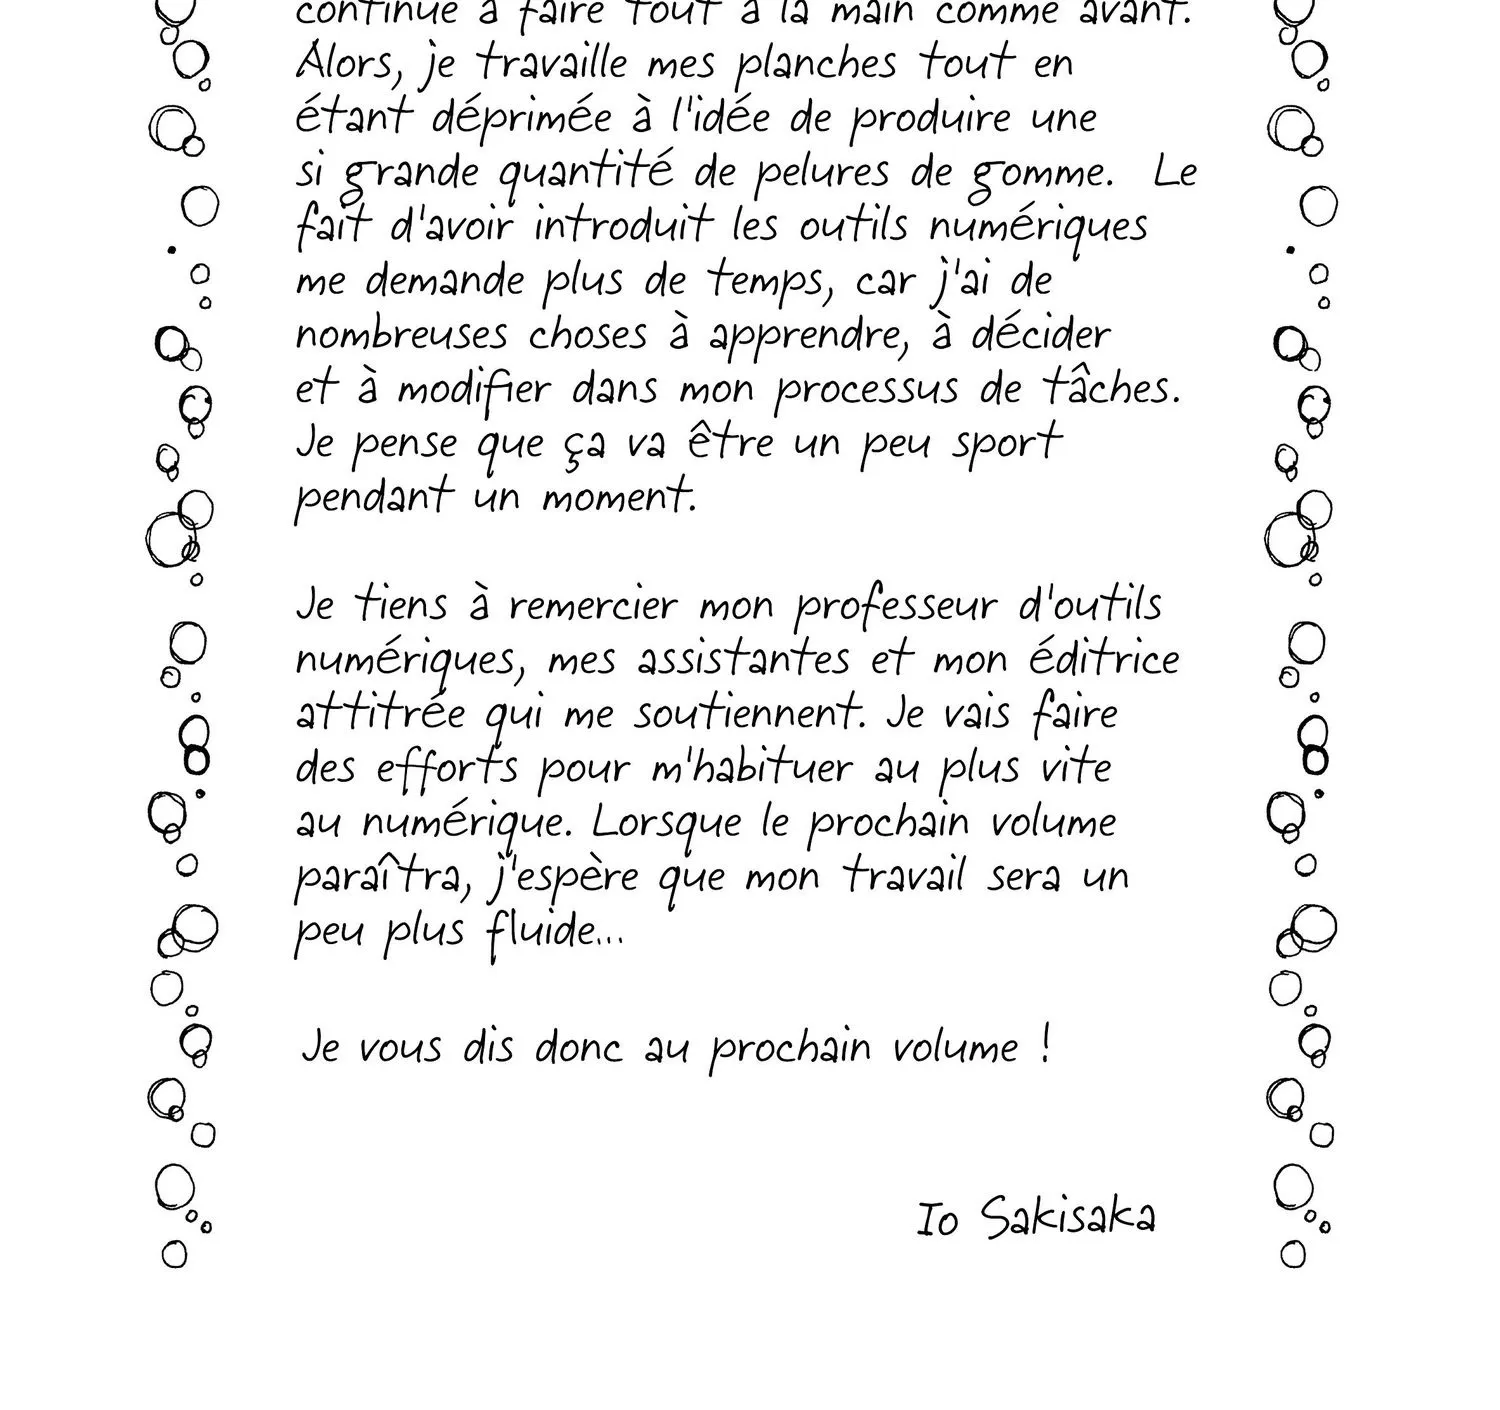 continue à faire tout à la main comme avant.
Alors, je travaille mes planches tout en
étant déprimée à l'idée de produire une
si grande quantité de pelures de gomme. Le
fait d'avoir introduit les outils numériques
me demande plus de temps, car j'ai de
nombreuses choses à apprendre, à décider
et à modifier dans mon processus de tâches.
Je pense que ça va être un peu sport
pendant un moment.
Je tiens à remercier mon professeur d'outils
numériques, mes assistantes et mon éditrice
attitrée qui me soutiennent. Je vais faire
des efforts pour m'habituer au plus vite
au numérique. Lorsque le prochain volume
paraîtra, j'espère que mon travail sera un
peu plus fluide...
Je vous dis donc au prochain volume !
Io Sakisaka